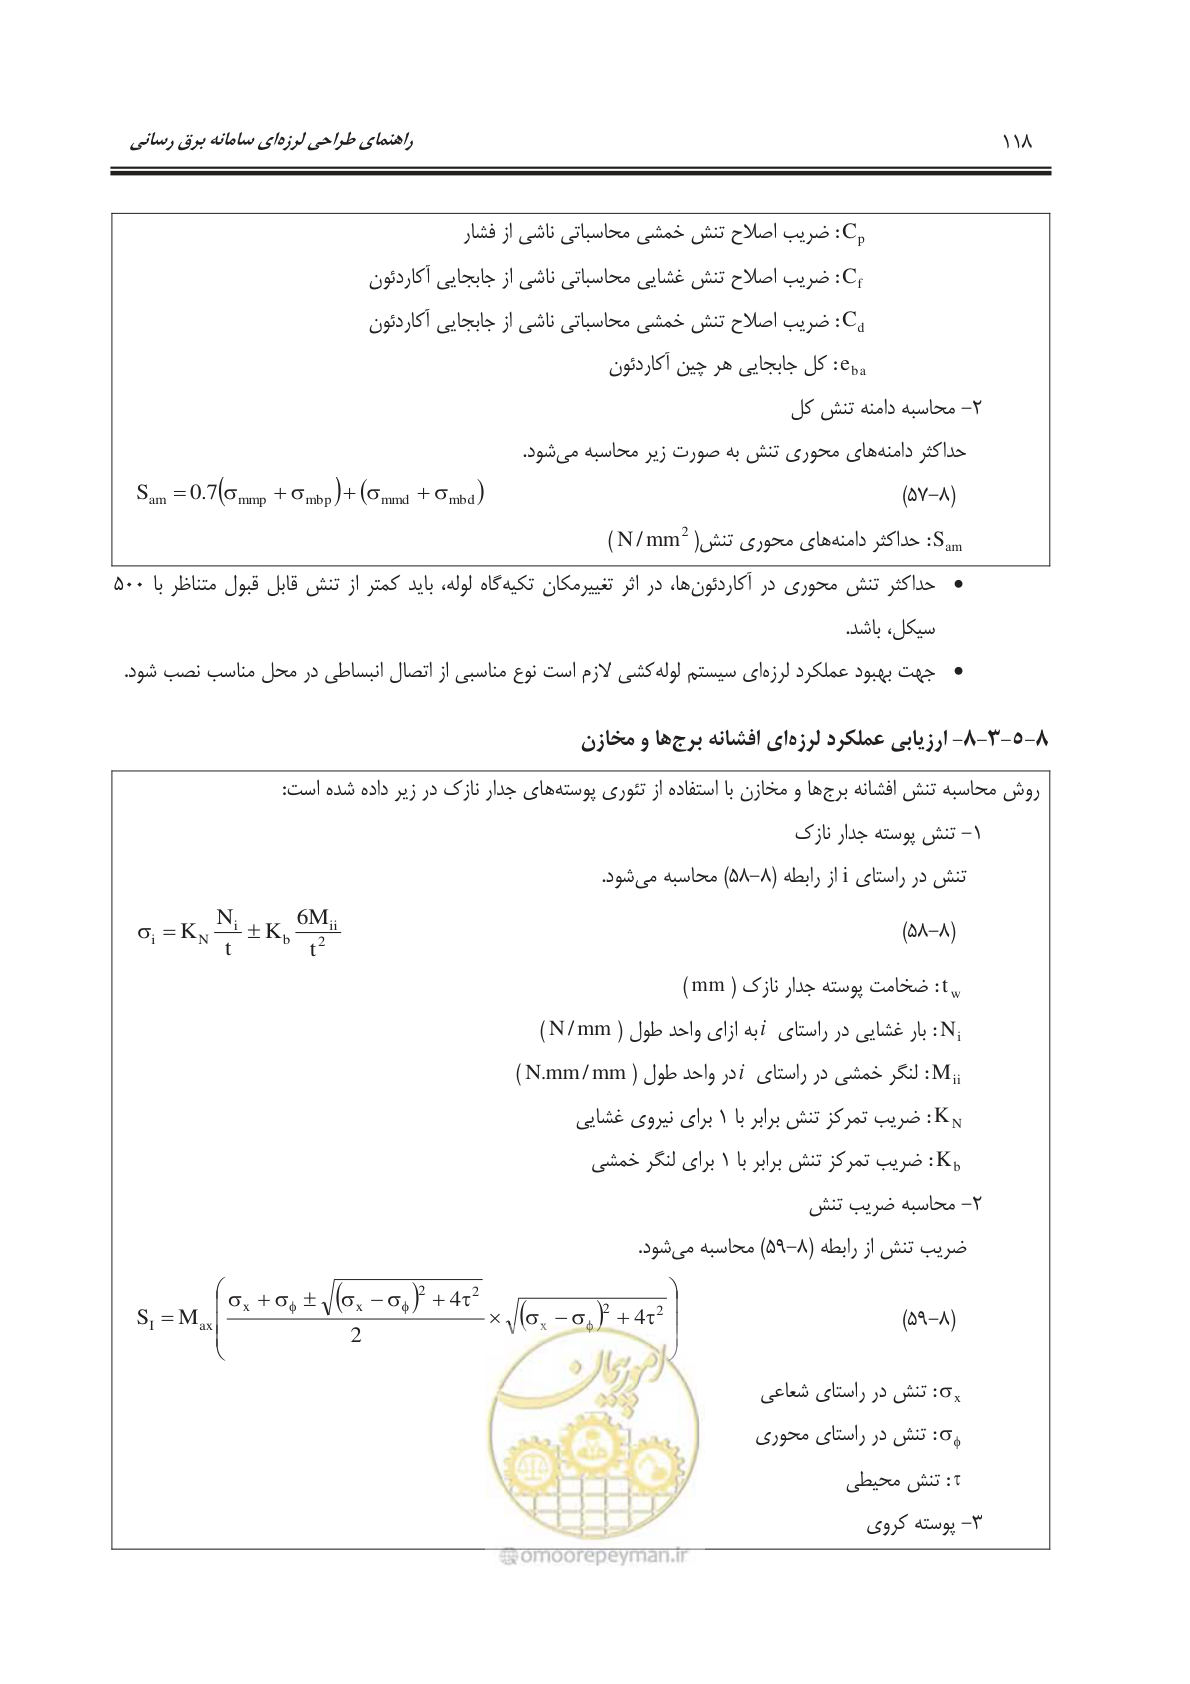 ۱۱۸ راهنمای طراحی لرزه‌ای سامانه برق رسانی
C_p: ضریب اصلاح تنش خمشی محاسباتی ناشی از فشار
C_f: ضریب اصلاح تنش غشایی محاسباتی ناشی از جابجایی آکاردئون
C_d: ضریب اصلاح تنش خمشی محاسباتی ناشی از جابجایی آکاردئون
e_ba: کل جابجایی هر چین آکاردئون
۲- محاسبه دامنه تنش کل
حداکثر دامنه‌های محوری تنش به صورت زیر محاسبه می‌شود.
(۸-۵۷) S_am = 0.7(σ_mmp + σ_mbp) + (σ_mmd + σ_mbd)
S_am: حداکثر دامنه‌های محوری تنش (N/mm²)
• حداکثر تنش محوری در آکاردئون‌ها، در اثر تغییرمکان تکیه‌گاه لوله، باید کمتر از تنش قابل قبول متناظر با ۵۰۰
سیکل، باشد.
• جهت بهبود عملکرد لرزه‌ای سیستم لوله‌کشی لازم است نوع مناسبی از اتصال انبساطی در محل مناسب نصب شود.
۸-۵-۳-۸- ارزیابی عملکرد لرزه‌ای افشانه برج‌ها و مخازن
روش محاسبه تنش افشانه برج‌ها و مخازن با استفاده از تئوری پوسته‌های جدار نازک در زیر داده شده است:
۱- تنش پوسته جدار نازک
تنش در راستای i از رابطه (۸-۵۸) محاسبه می‌شود.
(۸-۵۸) σ_i = K_N N_i/t ± K_b 6M_ii/t²
t_w: ضخامت پوسته جدار نازک (mm)
N_i: بار غشایی در راستای i به ازای واحد طول (N/mm)
M_ii: لنگر خمشی در راستای i در واحد طول (N.mm/mm)
K_N: ضریب تمرکز تنش برابر با ۱ برای نیروی غشایی
K_b: ضریب تمرکز تنش برابر با ۱ برای لنگر خمشی
۲- محاسبه ضریب تنش
ضریب تنش از رابطه (۸-۵۹) محاسبه می‌شود.
(۸-۵۹) S_I = M_ax( (σ_x + σ_ϕ ± √((σ_x − σ_ϕ)² + 4τ²))/2 × √((σ_x − σ_ϕ)² + 4τ²) )
σ_x: تنش در راستای شعاعی
σ_ϕ: تنش در راستای محوری
τ: تنش محیطی
۳- پوسته کروی
امور پیمان
@omoorepeyman.ir